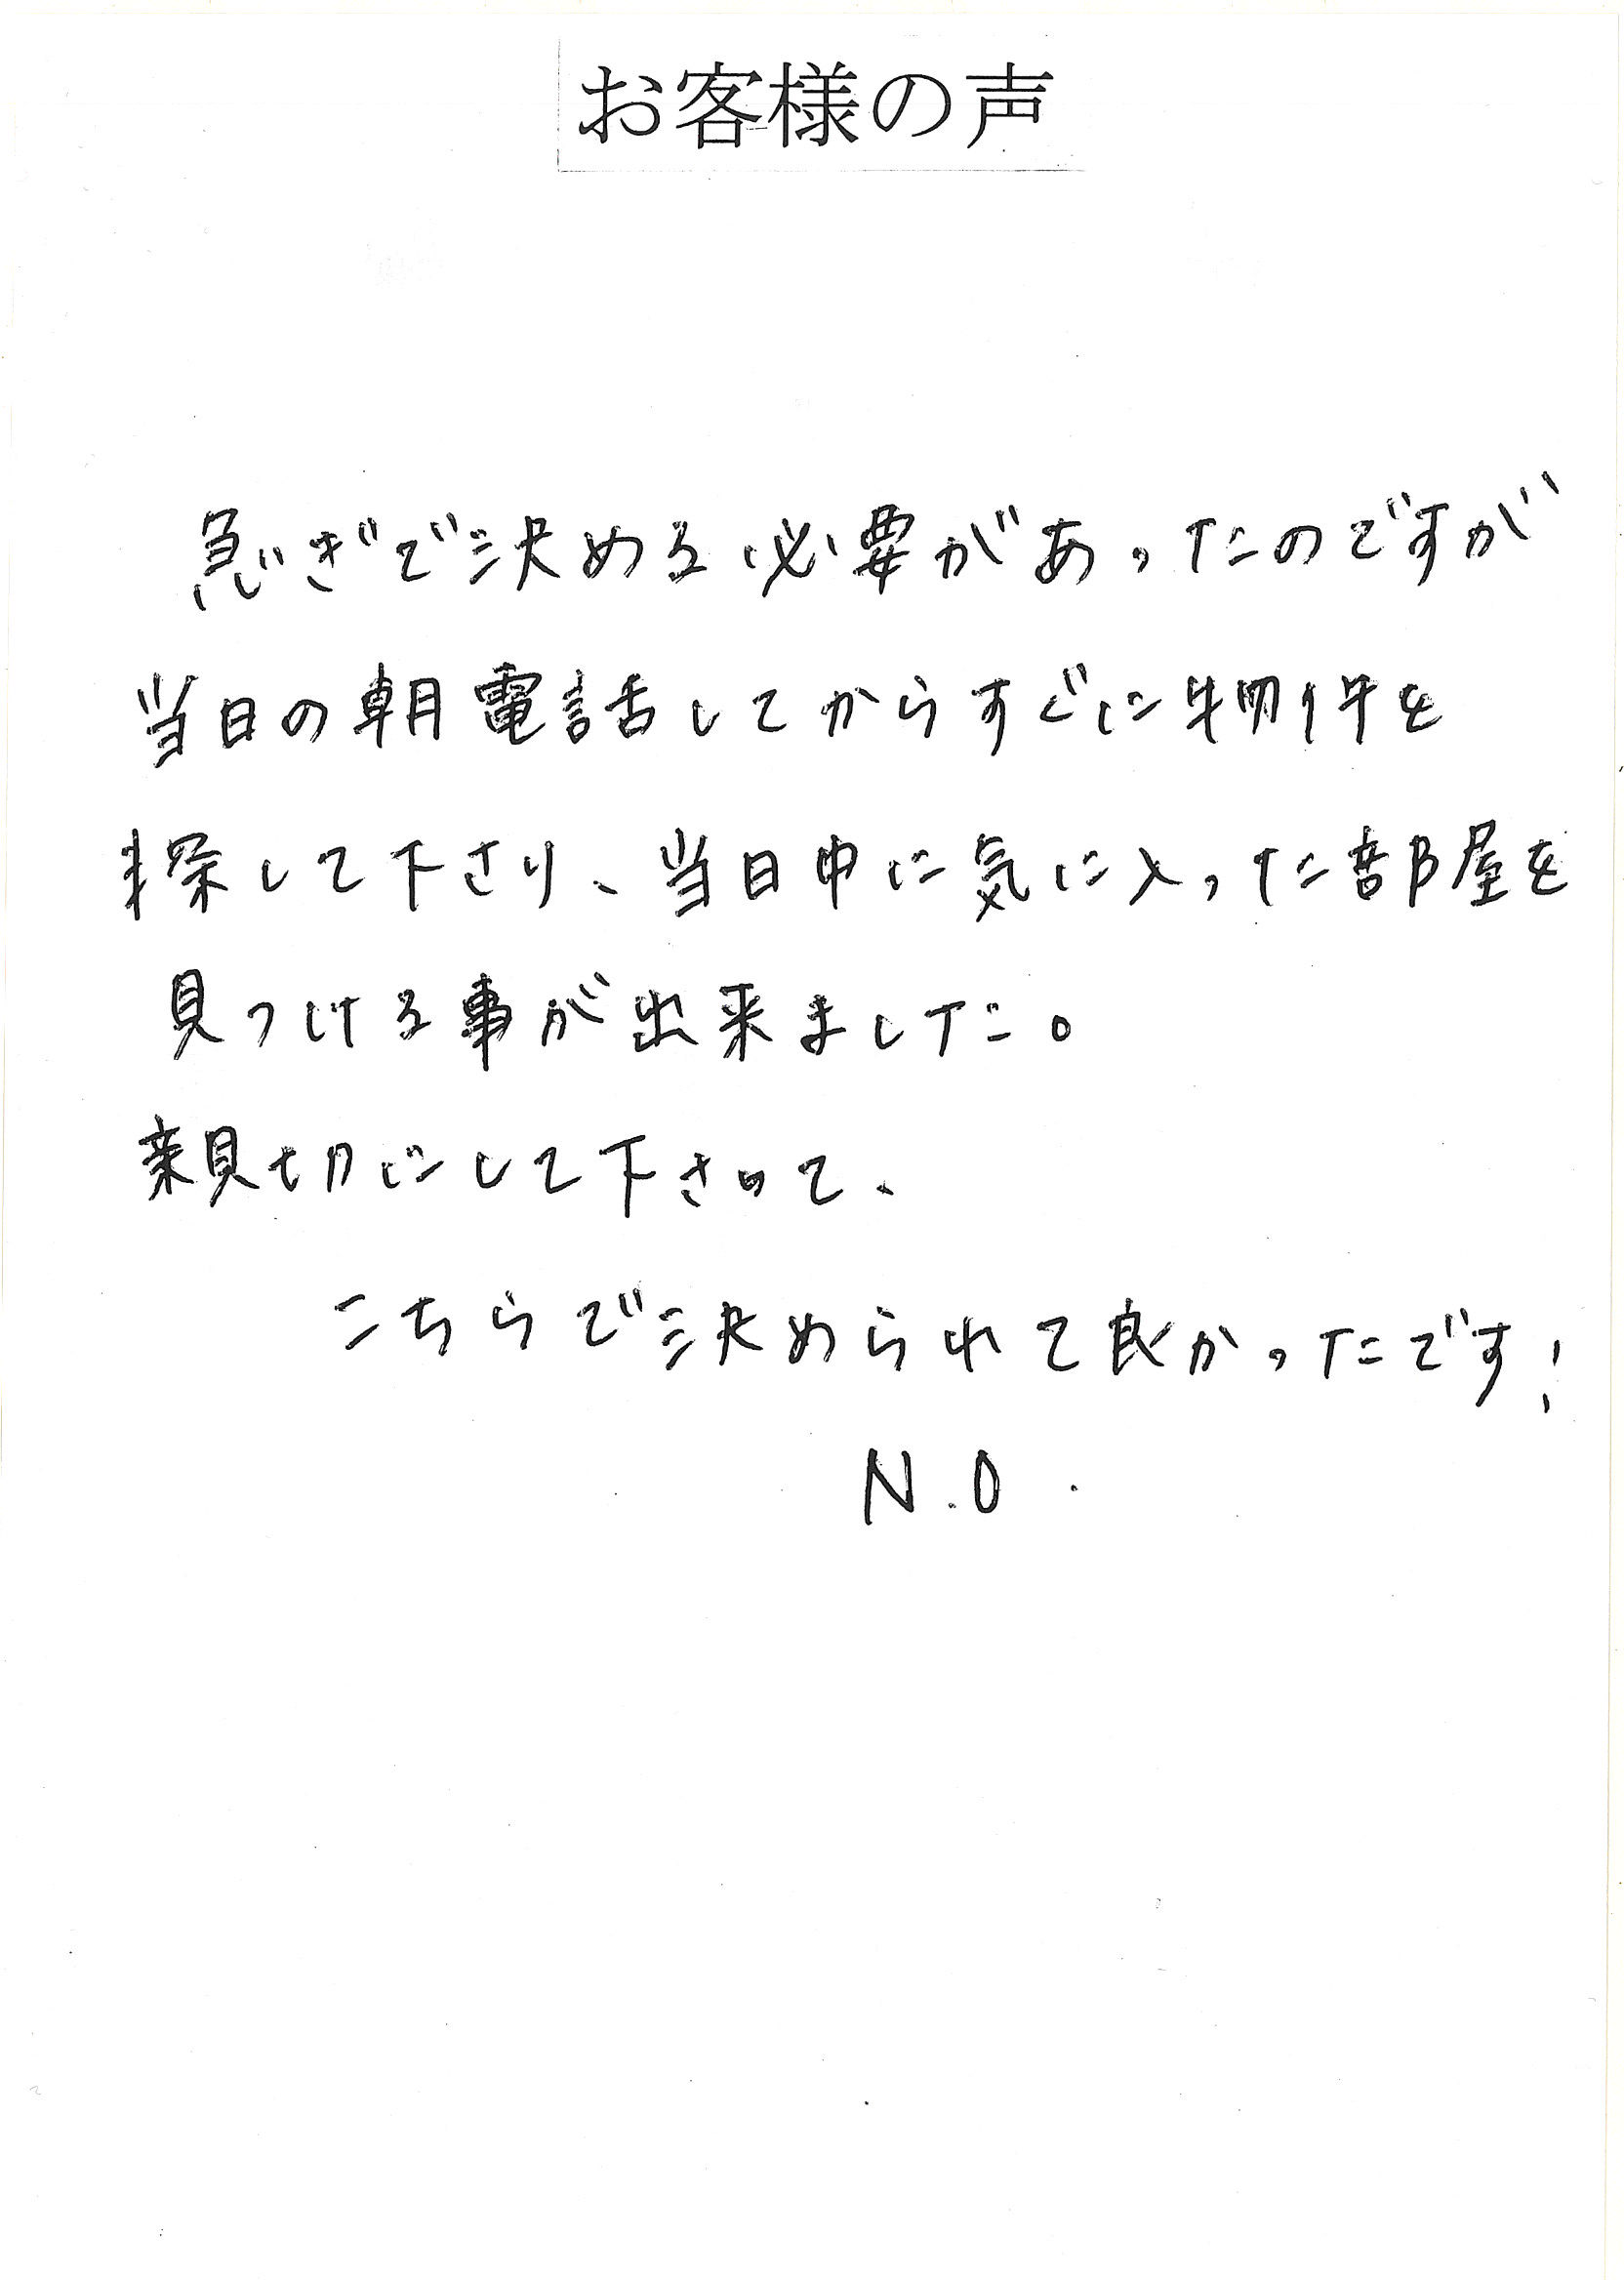 お客様の声
急ぎで決める必要があったのですが
当日の朝電話してからすぐに物件を
探して下さり、当日中に気に入った部屋を
見つける事が出来ました。
親切にして下さって、
こちらで決められて良かったです!
N.O.